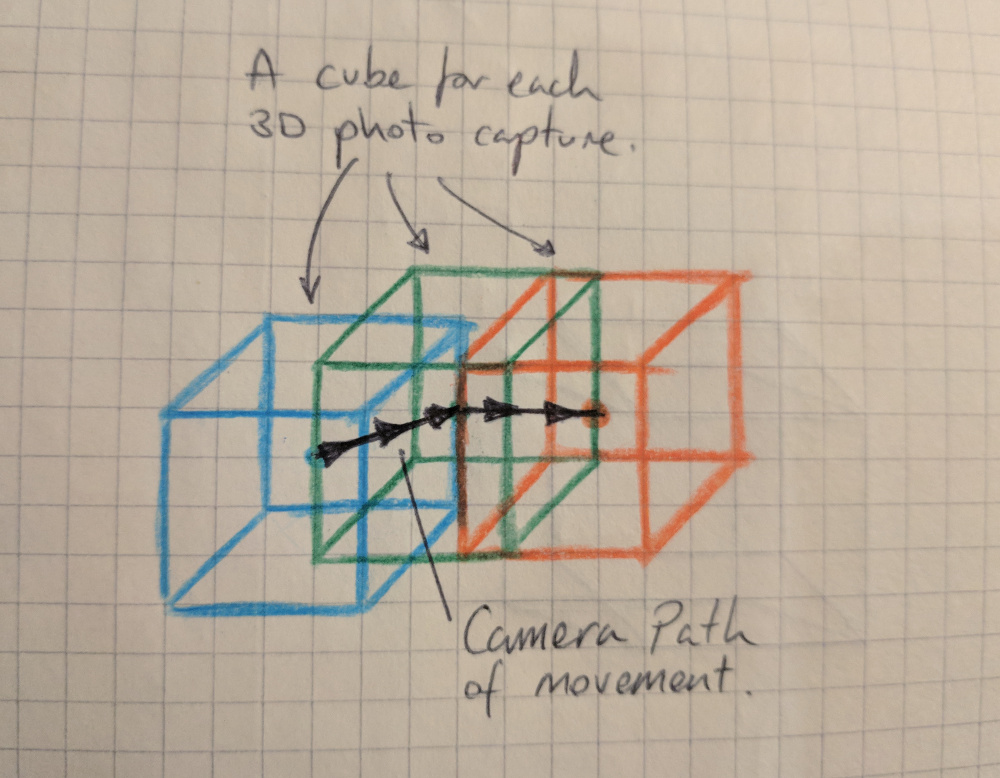 A cube for each
3D photo capture.
Camera Path
of movement.